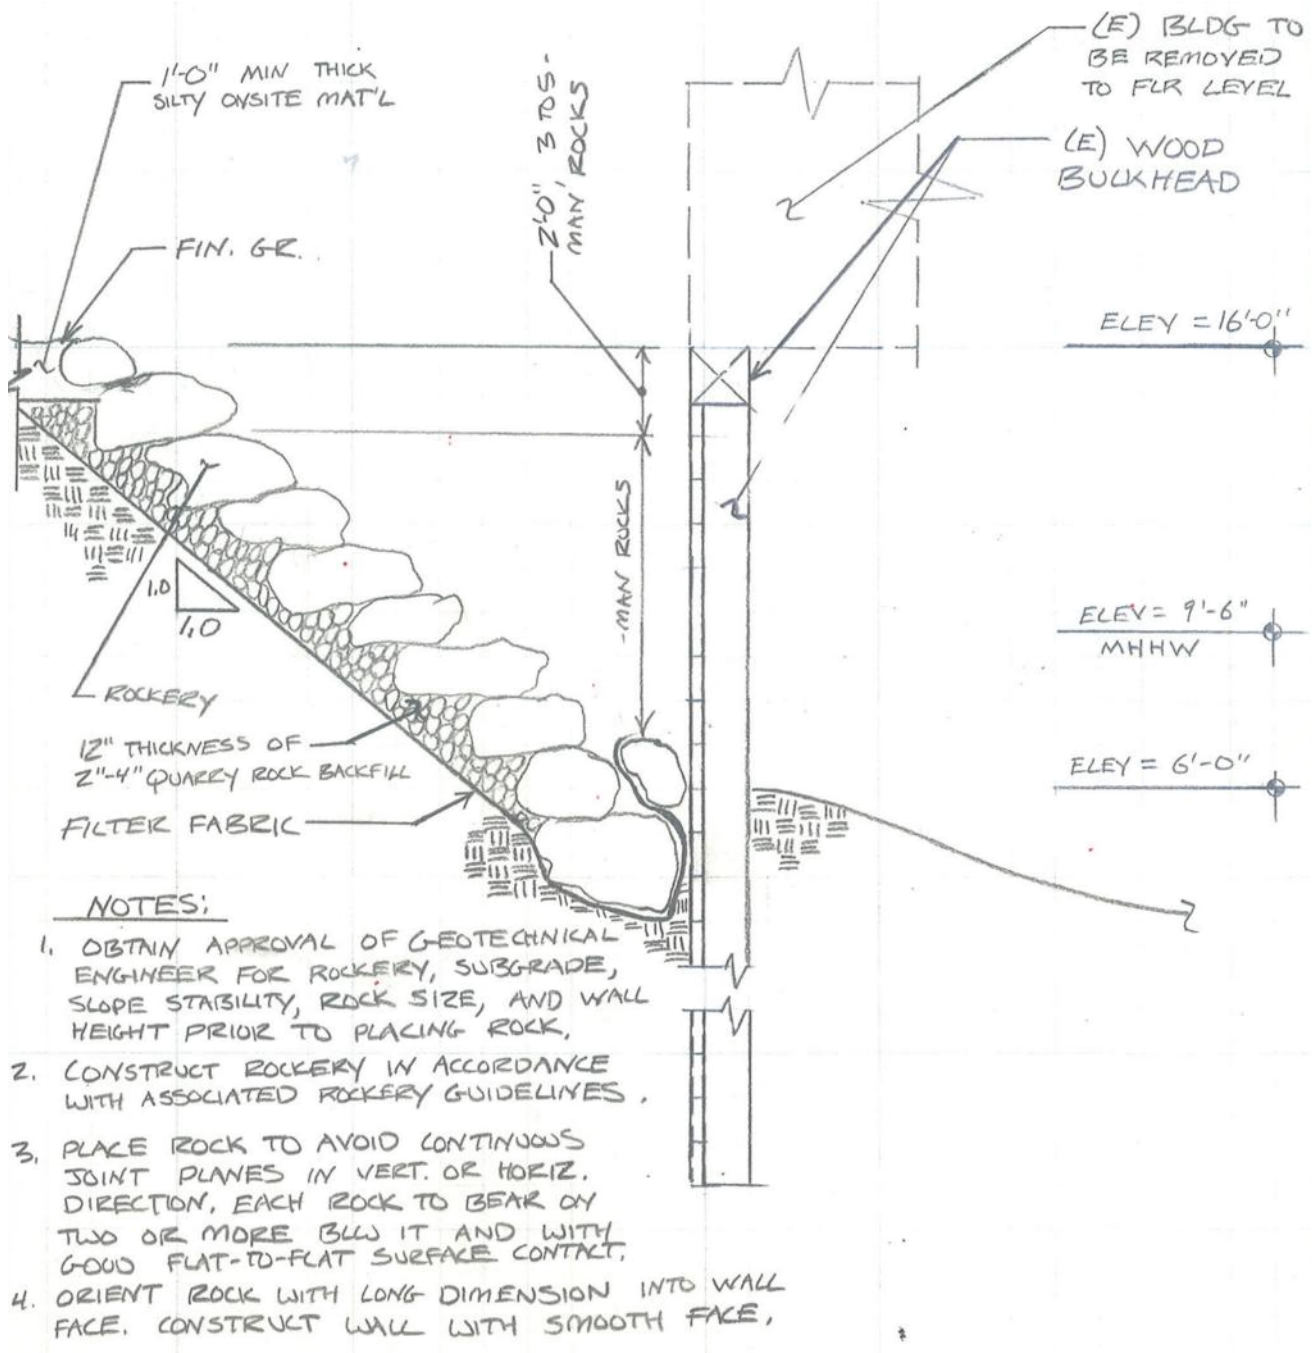 1'-0" MIN THICK
SILTY ONSITE MAT'L
FIN. GR.
2'-0", 3 TO 5-
MAN' ROCKS
(E) BLDG TO
BE REMOVED
TO FLR LEVEL
(E) WOOD
BULKHEAD
ELEV = 16'-0"
-MAN ROCKS
1.0
1.0
ELEV = 9'-6"
MHHW
ROCKERY
12" THICKNESS OF
2"-4" QUARRY ROCK BACKFILL
ELEV = 6'-0"
FILTER FABRIC
NOTES:
1. OBTAIN APPROVAL OF GEOTECHNICAL
ENGINEER FOR ROCKERY, SUBGRADE,
SLOPE STABILITY, ROCK SIZE, AND WALL
HEIGHT PRIOR TO PLACING ROCK.
2. CONSTRUCT ROCKERY IN ACCORDANCE
WITH ASSOCIATED ROCKERY GUIDELINES.
3. PLACE ROCK TO AVOID CONTINUOUS
JOINT PLANES IN VERT. OR HORIZ.
DIRECTION. EACH ROCK TO BEAR ON
TWO OR MORE BLW IT AND WITH
GOOD FLAT-TO-FLAT SURFACE CONTACT.
4. ORIENT ROCK WITH LONG DIMENSION INTO WALL
FACE. CONSTRUCT WALL WITH SMOOTH FACE.